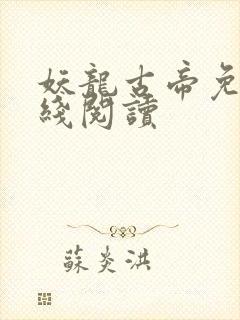 妖龍古帝免
綫閱讀
蘇炎洪